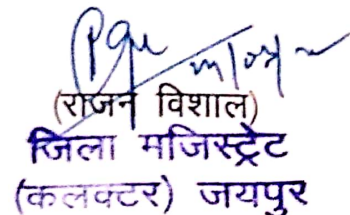 (राजन विशाल)
जिला मजिस्ट्रेट
(कलक्टर) जयपुर